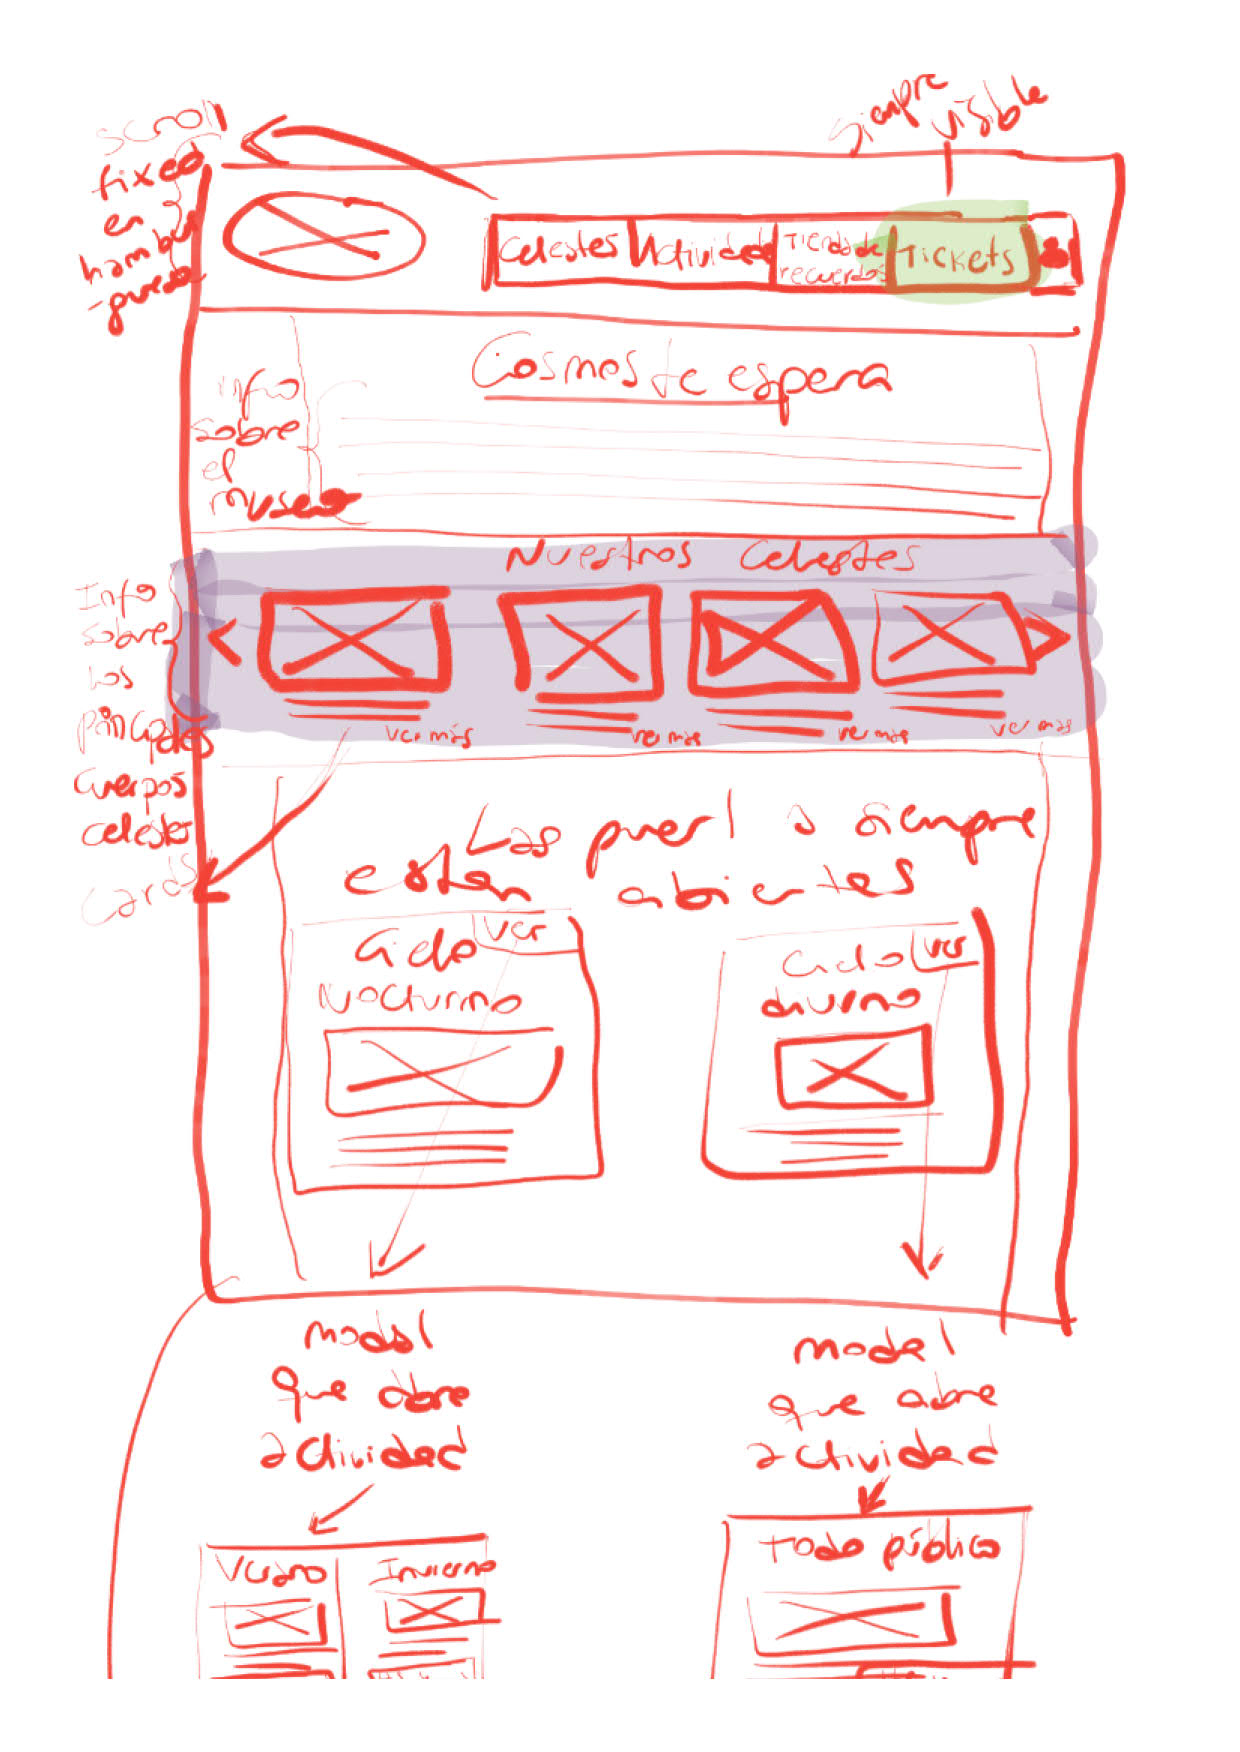 siempre
visible
scroll
fixed
en
hambur
-guesa
Celestes
Actividad
Tienda de
recuerdos
Tickets
Cosmos te espera
info
sobre
el
museo
Nuestros Celestes
Info
sobre
los
principales
cuerpos
celestes
cards
ver más
ver mas
ver mas
ver mas
Las puertas siempre
estan abiertas
Ciclo
Nocturno
ver
Ciclo
diurno
ver
modal
que abre
actividad
modal
que abre
actividad
Verano
Invierno
Todo público